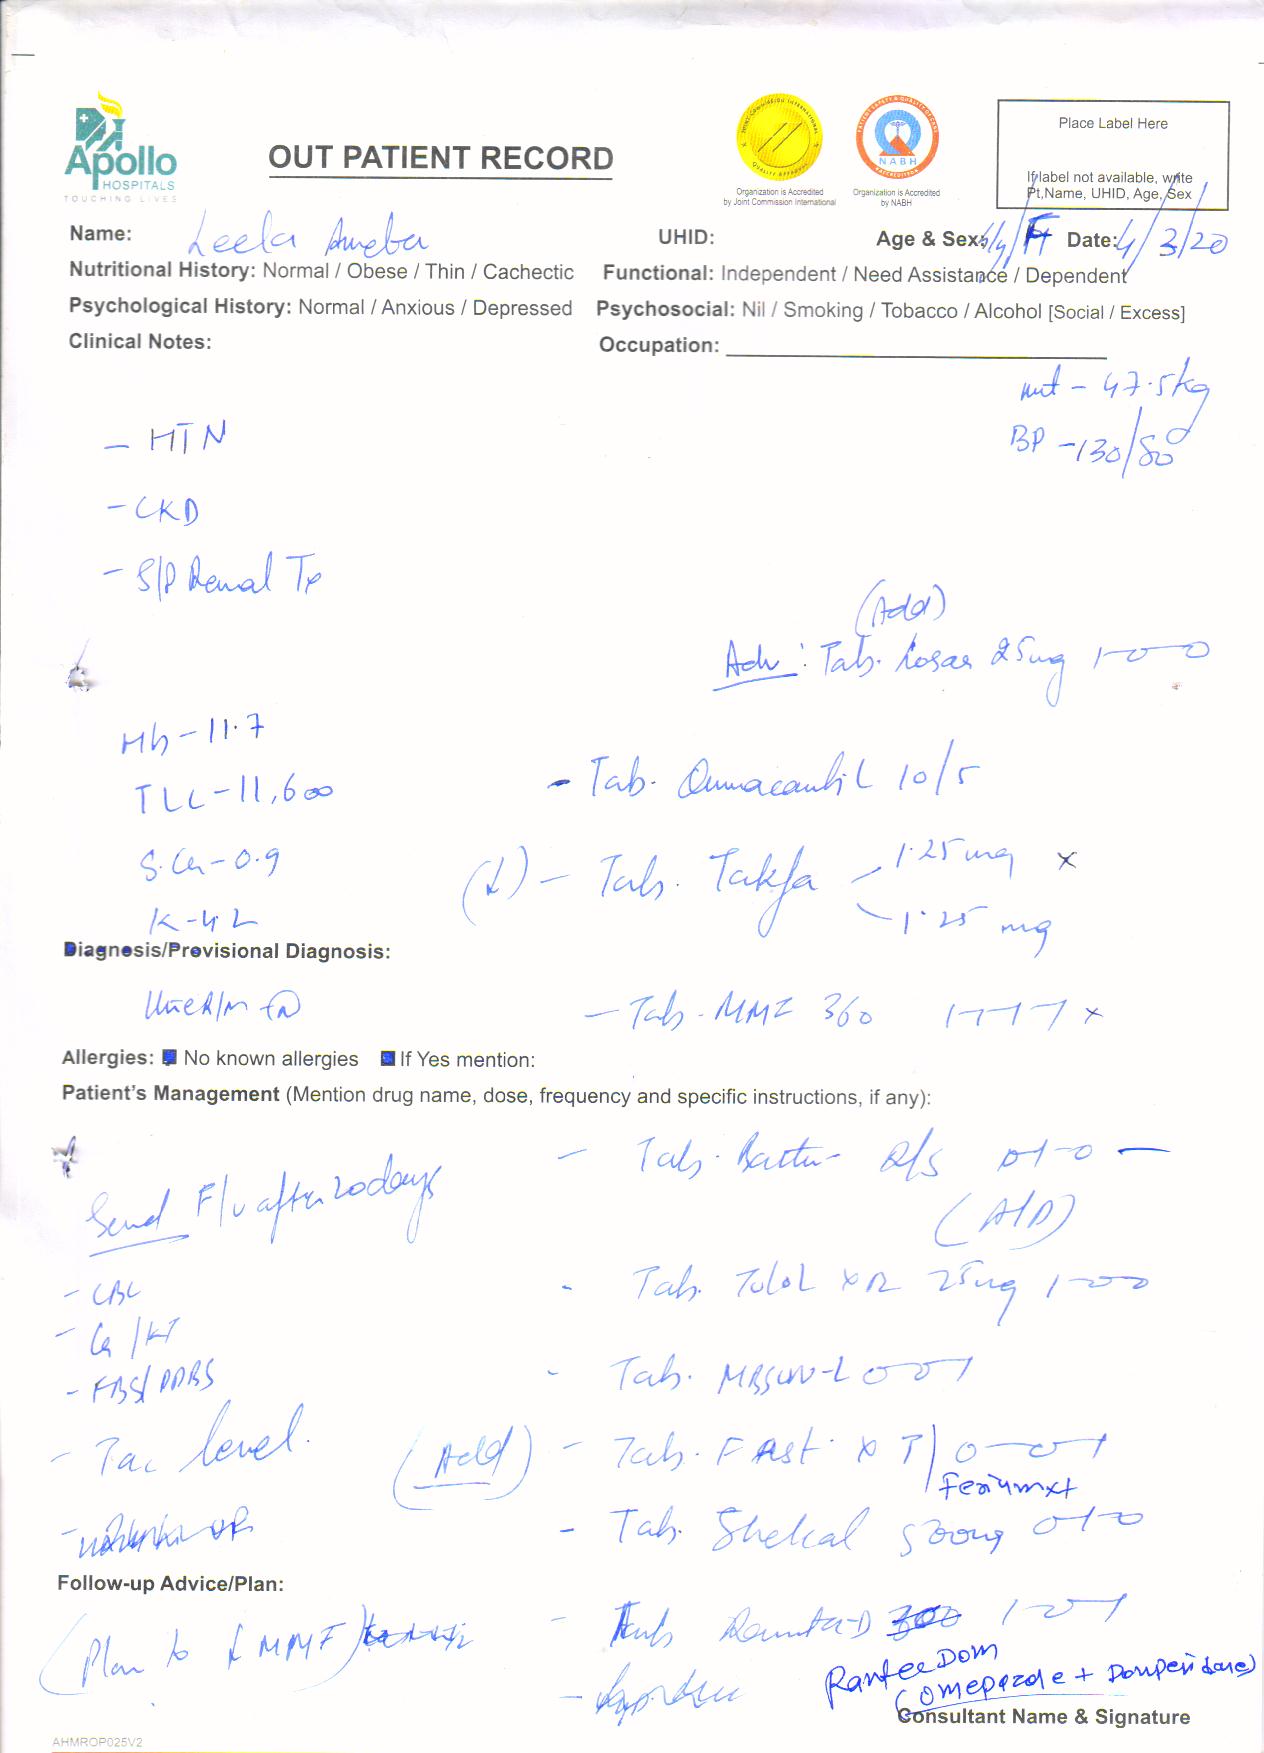 Apollo
HOSPITALS
TOUCHING LIVES
OUT PATIENT RECORD
JOINT COMMISSION INTERNATIONAL
QUALITY APPROVAL
Organization is Accredited
by Joint Commission International
NABH
Organization is Accredited
by NABH
Place Label Here
If label not available, write
Pt,Name, UHID, Age, Sex
Name: Leela UHID: Age & Sex: /F Date: 4/3/20
Nutritional History: Normal / Obese / Thin / Cachectic Functional: Independent / Need Assistance / Dependent
Psychological History: Normal / Anxious / Depressed Psychosocial: Nil / Smoking / Tobacco / Alcohol [Social / Excess]
Clinical Notes: Occupation:
wt - 47.5kg
BP - 130/80
- HTN
- CKD
- S/P Renal Tx
(Add)
Adv: Tab. Losar 25mg 1-0-0
Hb - 11.7
TLC - 11,600
S.Cr - 0.9
K - 4.2
- Tab. 10/5
(↓) - Tab. Takfa 1.25 mg x
1.25 mg
Diagnosis/Provisional Diagnosis:
Urine R/M
- Tab. MMF 360 1-1-1 x
Allergies: No known allergies If Yes mention:
Patient's Management (Mention drug name, dose, frequency and specific instructions, if any):
- Tab. D/S 0-1-0 -
(A/D)
Send F/u after 20 days
- CBC
- Cr/K+
- FBS/PPBS
- Tac level.
- Tab. Tolol XR 25mg 1-0-0
- Tab. 0-0-1
(Add) - Tab. Fast XT 0-0-1
Ferium xt
- Tab. Shelcal 500mg 0-1-0
Follow-up Advice/Plan:
(Plan to ↓ MMF)
- Tab 1-0-1
Rantee DOM
(omeprazole + Domperidone)
Consultant Name & Signature
AHMROP025V2